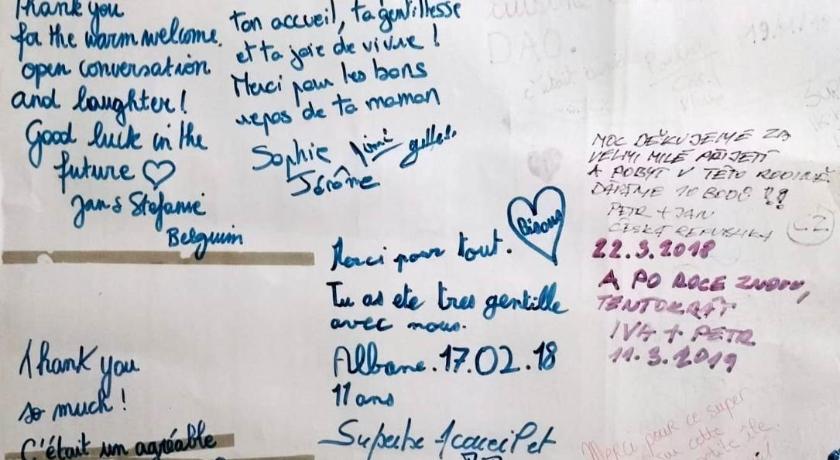 Thank you
for the warm welcome.
open conversation
and laughter!
Good luck in the
future
Jan & Stefanie
Belguim
Thank you
so much!
C'était un agréable
ton accueil, ta gentillesse
et ta joie de vivre!
Merci pour les bons
repas de ta maman
Sophie
Jérôme
Bisous
Merci pour tout.
Tu as ete tres gentille
avec nous.
Albane. 17.02.18
11 ans
Superbe
DAO.
MOC DĚKUJEME ZA
VELMI MILÉ PŘIJETÍ
A POBYT V TÉTO RODINĚ
DÁVÁME 10 BODŮ !!
PETR + JAN
ČESKÁ REPUBLIKA CZ
22.3.2018
A PO ROCE ZNOVU,
TENTOKRÁT
IVA + PETR
11.3.2019
Merci pour ce super